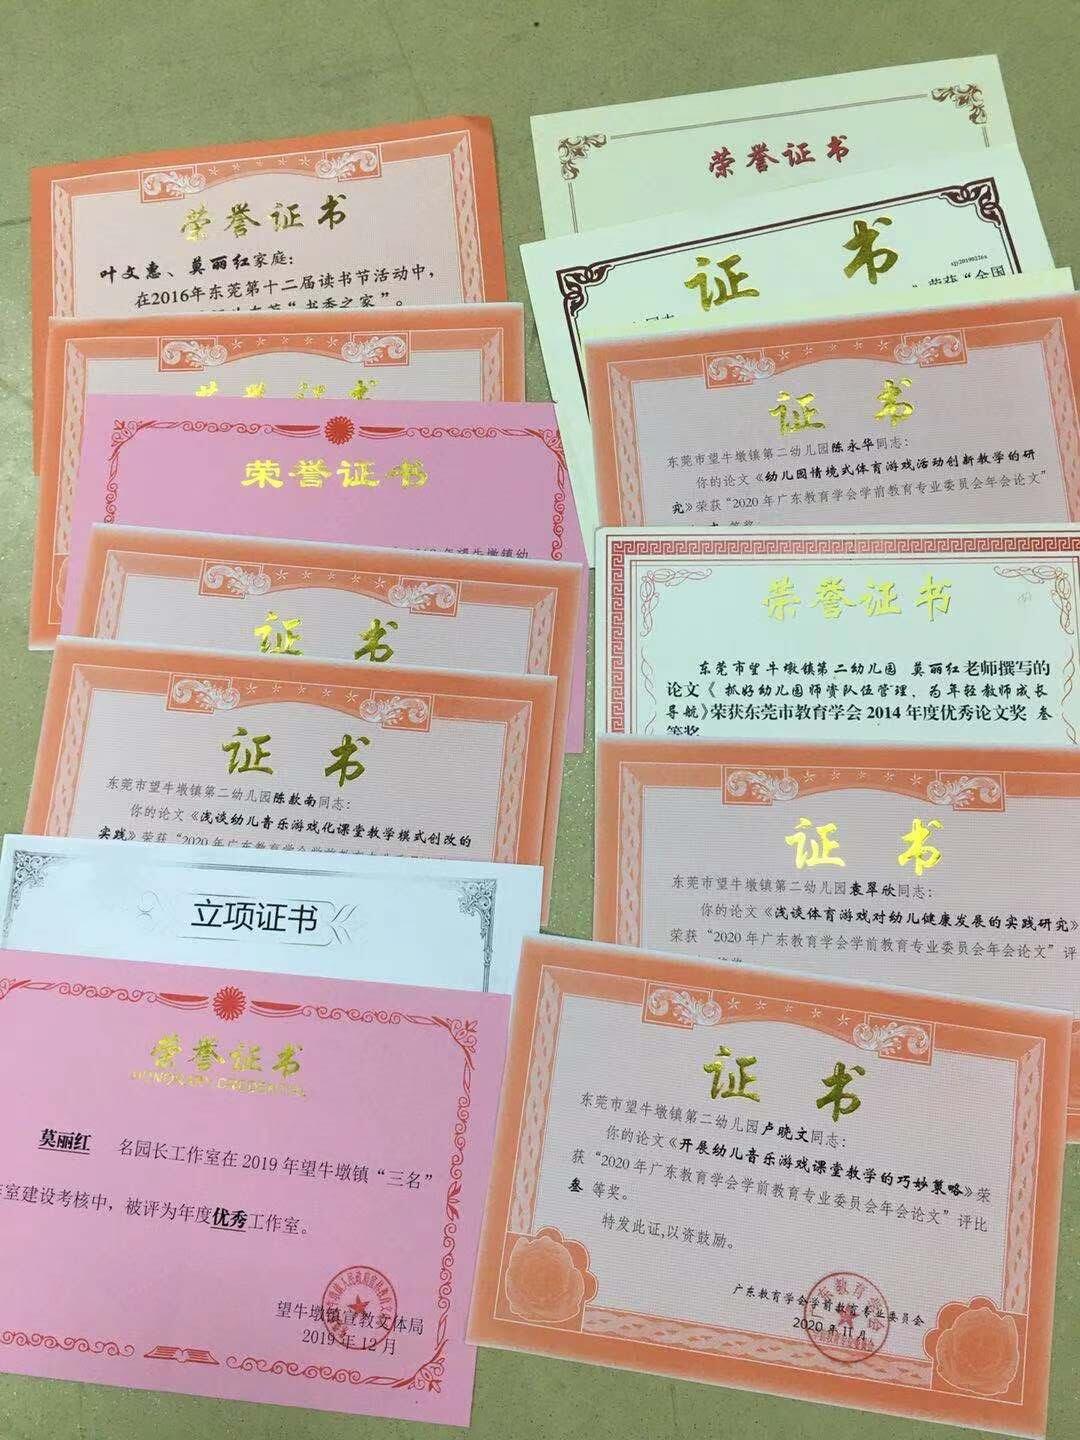 荣誉证书
叶文惠、莫丽红家庭：
在2016年东莞第十二届读书节活动中，
“书香之家”。
荣誉证书
荣誉证书
年望牛墩镇幼
证书
证书
东莞市望牛墩镇第二幼儿园陈敖南同志：
你的论文《浅谈幼儿音乐游戏化课堂教学模式创改的
实践》荣获“2020年广东教育学会学前教育专业委员会
立项证书
荣誉证书
HONORARY CREDENTIAL
莫丽红 名园长工作室在2019年望牛墩镇“三名”
室建设考核中，被评为年度优秀工作室。
望牛墩镇宣教文体局
2019年12月
荣誉证书
证书
荣获“全国
证书
东莞市望牛墩镇第二幼儿园陈永华同志：
你的论文《幼儿园情境式体育游戏活动创新教学的研
究》荣获“2020年广东教育学会学前教育专业委员会年会论文”
等奖
荣誉证书
东莞市望牛墩镇第二幼儿园 莫丽红老师撰写的
论文《抓好幼儿园师资队伍管理，为年轻教师成长
导航》荣获东莞市教育学会2014年度优秀论文奖 叁
等奖
证书
东莞市望牛墩镇第二幼儿园袁翠欣同志：
你的论文《浅谈体育游戏对幼儿健康发展的实践研究》
荣获“2020年广东教育学会学前教育专业委员会年会论文”评
证书
东莞市望牛墩镇第二幼儿园卢晓文同志：
你的论文《开展幼儿音乐游戏课堂教学的巧妙策略》荣
获“2020年广东教育学会学前教育专业委员会年会论文”评比
叁 等奖。
特发此证,以资鼓励。
广东教育学会学前教育专业委员会
2020年11月